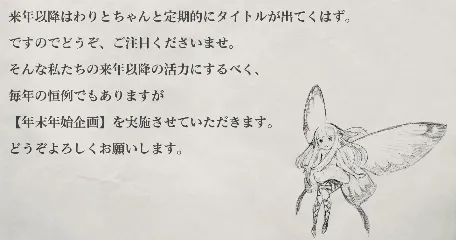 来年以降はわりとちゃんと定期的にタイトルが出てくはず。
ですのでどうぞ、ご注目くださいませ。
そんな私たちの来年以降の活力にするべく、
毎年の恒例でもありますが
【年末年始企画】を実施させていただきます。
どうぞよろしくお願いします。